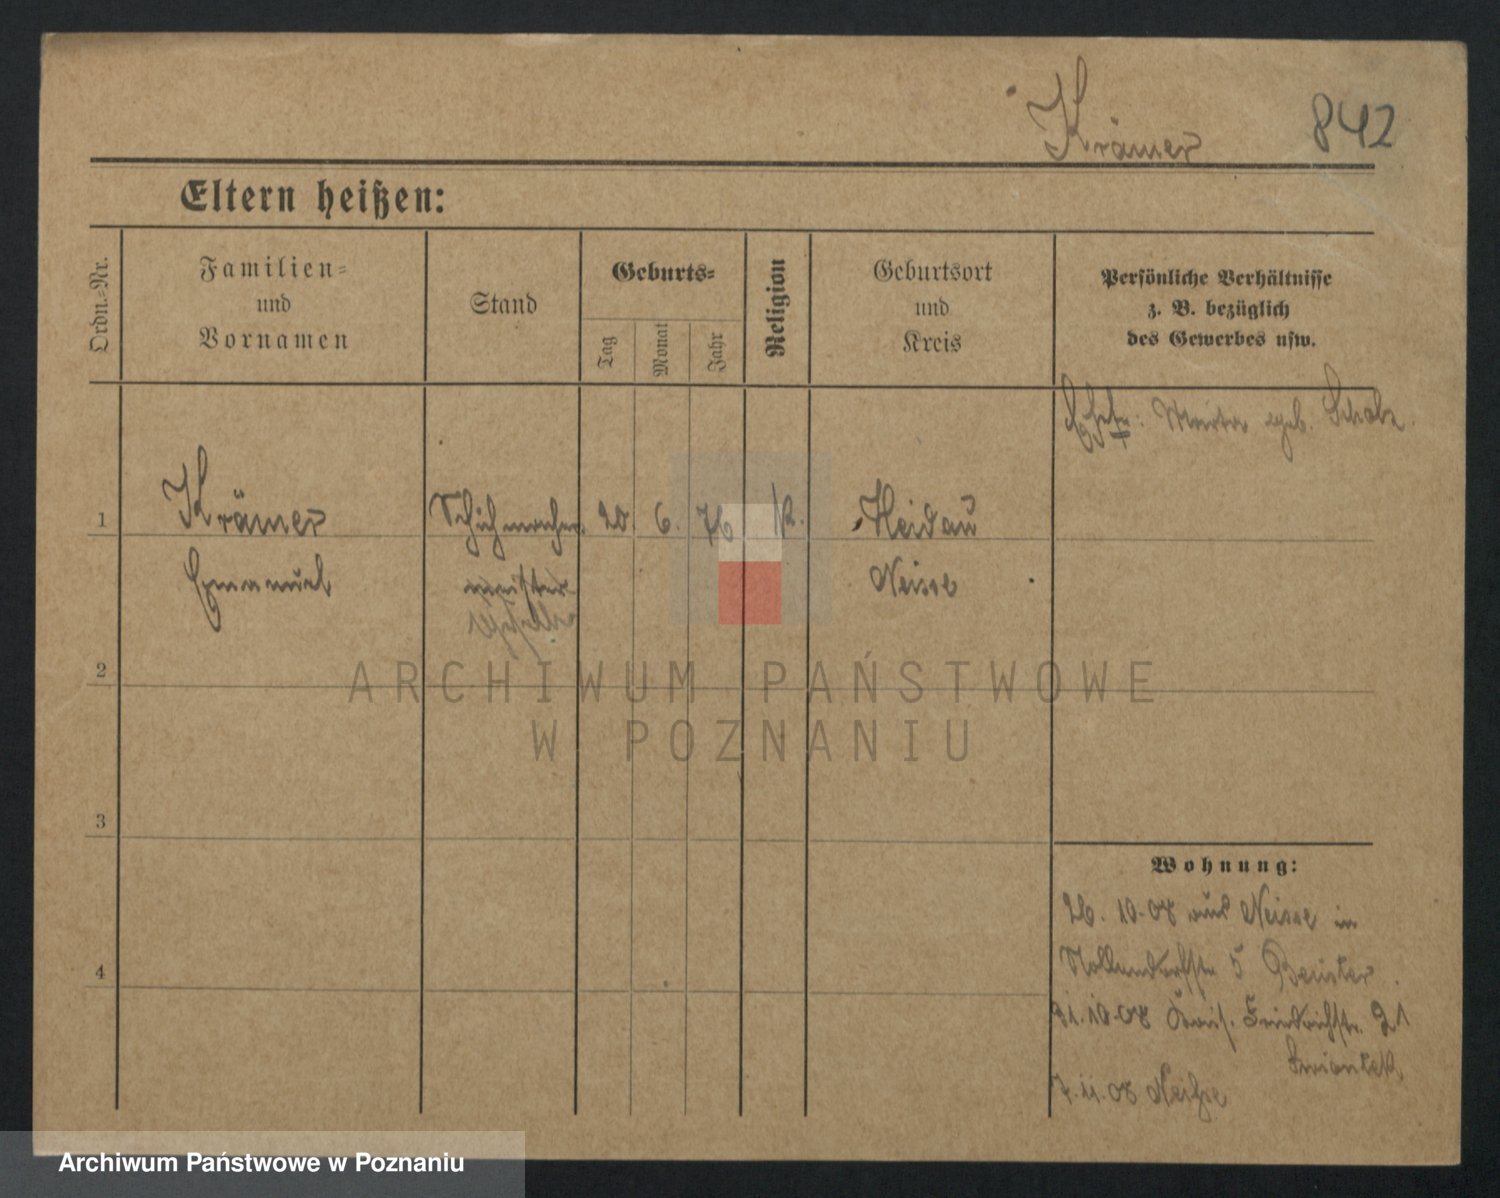 Krämer 842
Eltern heißen:
Ordn.-Nr.
Familien-
und
Vornamen
Stand
Geburts-
Tag
Monat
Jahr
Religion
Geburtsort
und
Kreis
Persönliche Verhältnisse
z. B. bezüglich
des Gewerbes usw.
geb. Scholz
1
Krämer
Emanuel
Schuhmacher
meister
20. 6. 76
K.
Heidau
Neisse
2
3
4
Wohnung:
26. 10. 08 aus Neisse in
Nollendorfstr 5
31. 10. 08 Friedrichstr. 21
7. 11. 08 Neiße
ARCHIWUM PAŃSTWOWE
W POZNANIU
Archiwum Państwowe w Poznaniu